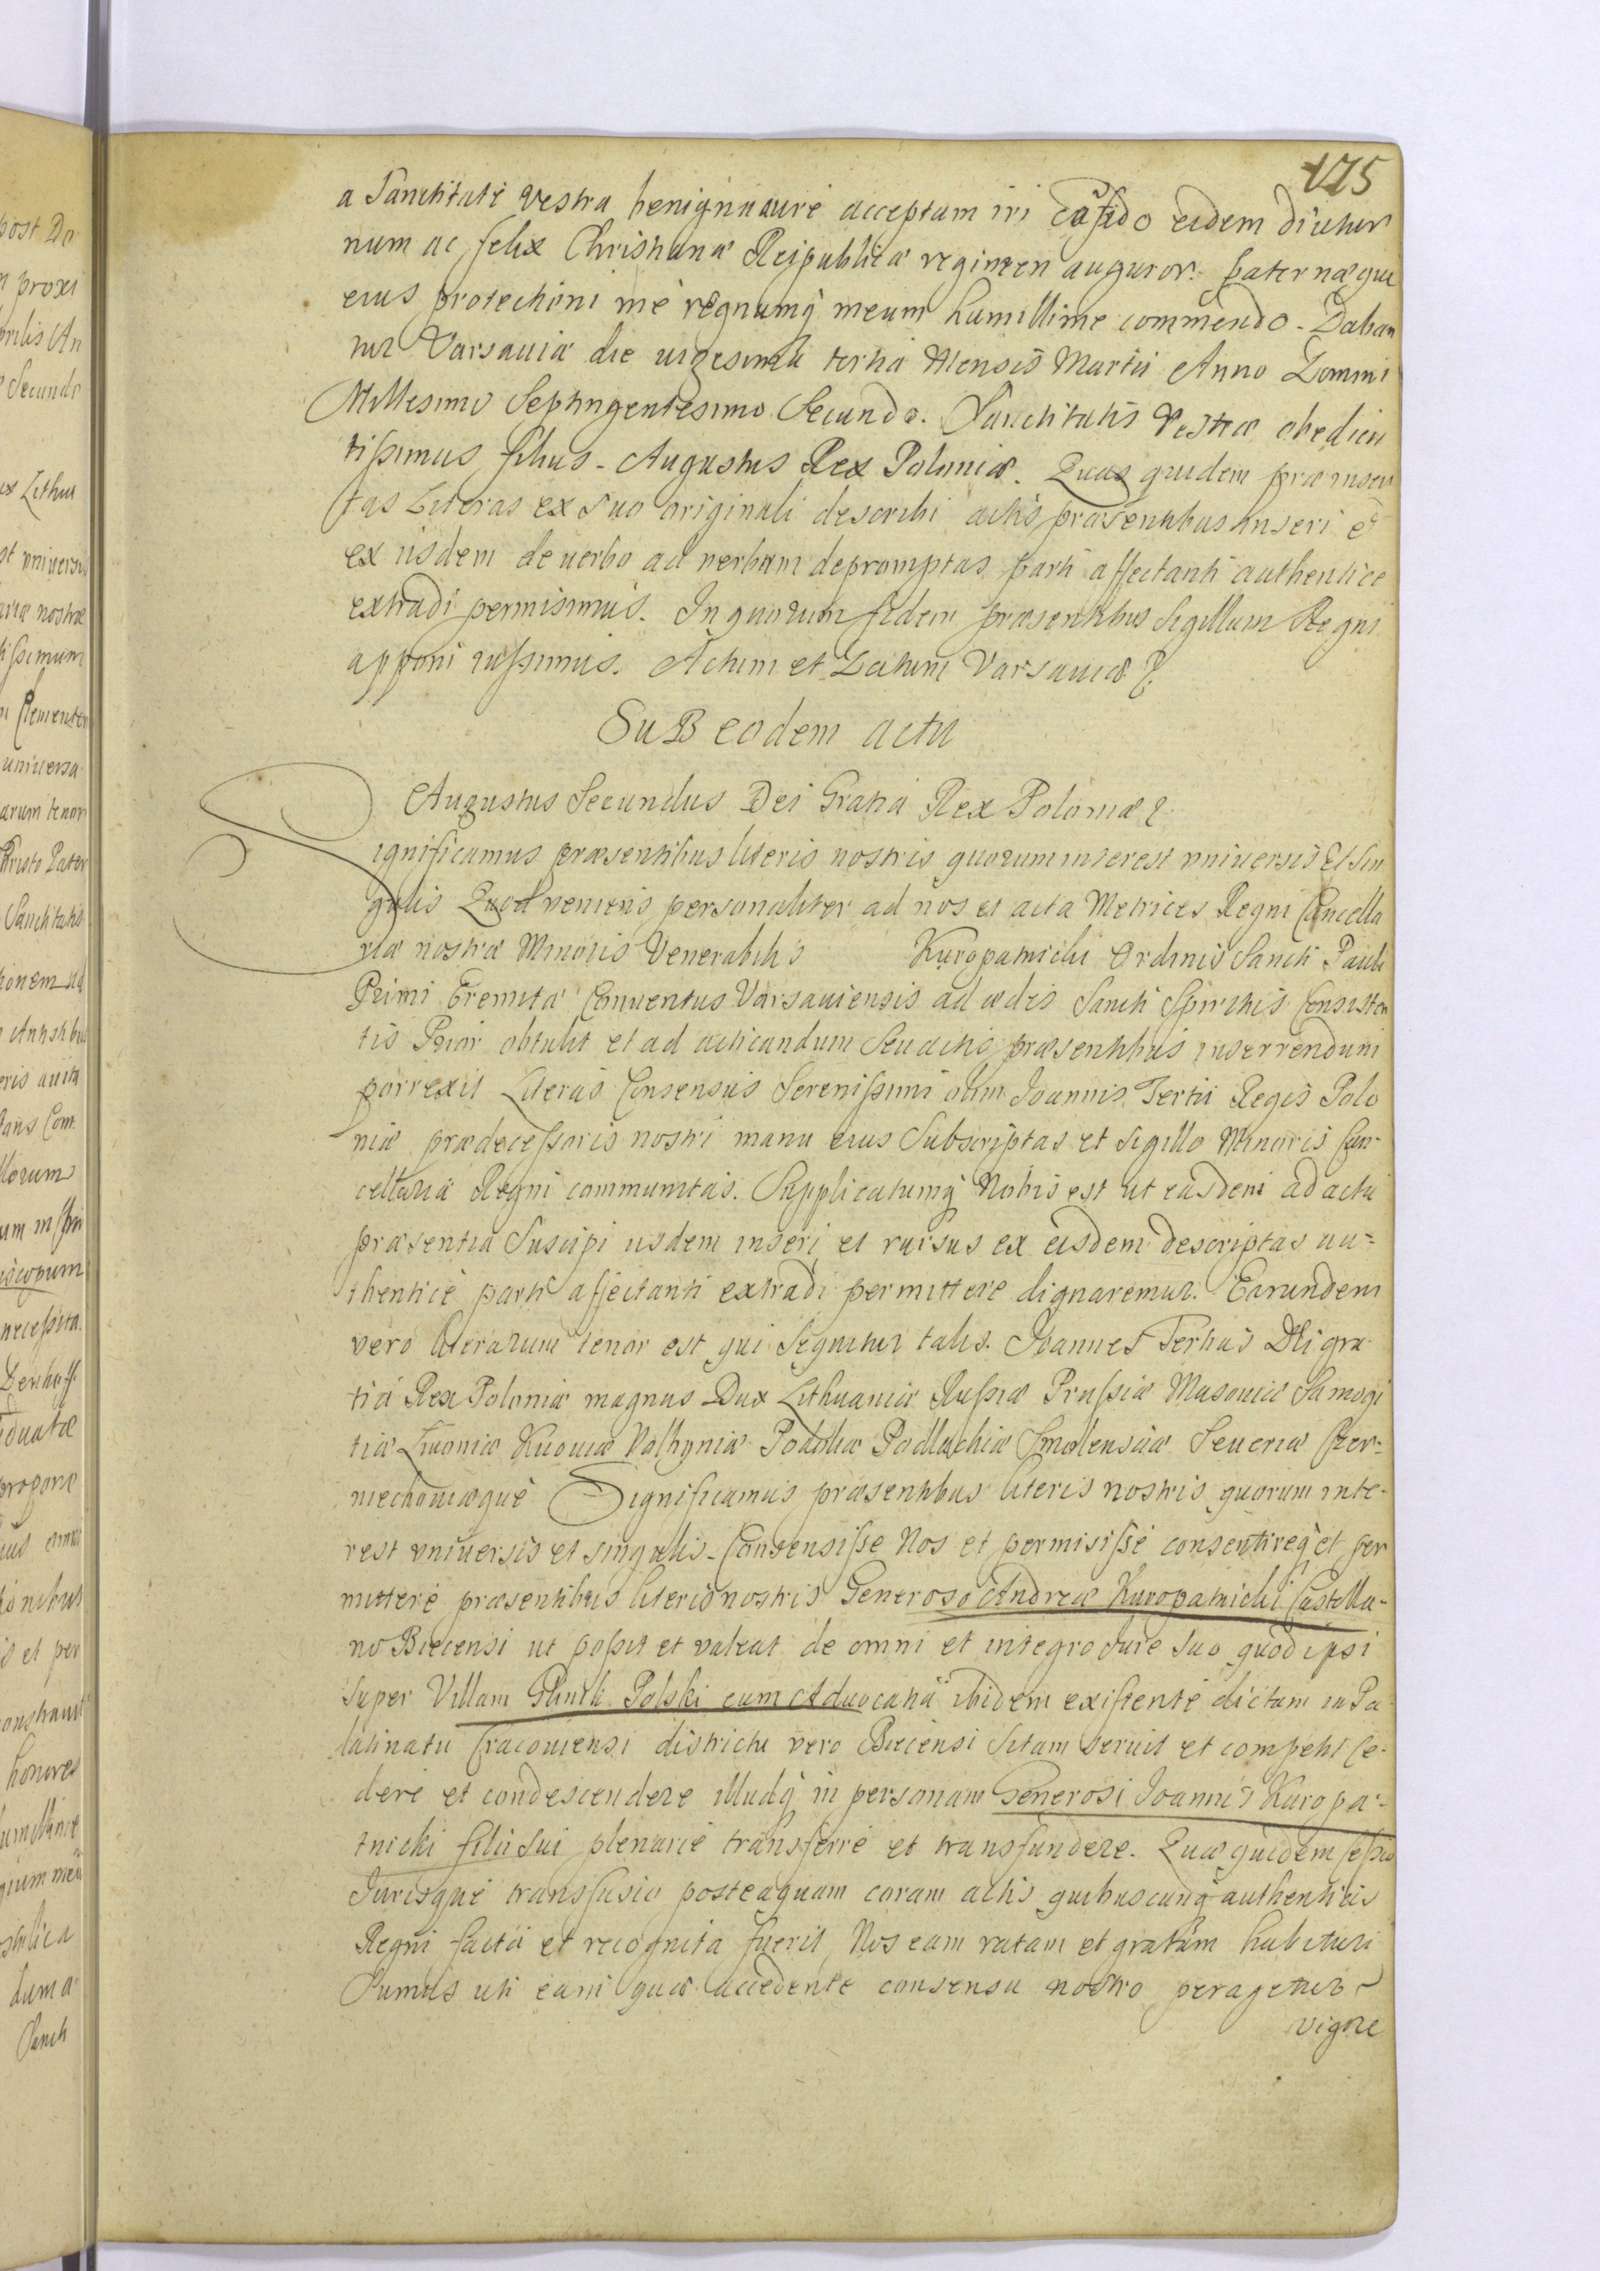 175
a Sanctitate vestra benigna aure acceptum iri cōfido eidem diutur
num ac felix Christianæ Reipublicæ regimen auguror. paternæque
eius protectioni me regnumq meum humillime commendo. Daban
tur Varsaviæ die vigesima tertia Mensis Martii Anno Domini
Millesimo Septingentesimo Secundo. Sanctitatis Vestræ obedien
tissimus filius. Augustus Rex Poloniæ. Quas quidem præinser
tas Literas ex suo originali describi actis præsentibus inseri et
ex iisdem de verbo ad verbum depromptas parti affectanti authentice
extradi permisimus. In quorum fidem præsentibus Sigillum Regni
apponi iussimus. Actum et Datum Varsaviæ
SuB eodem actu
Augustus Secundus Dei Gratia Rex Poloniæ
Significamus præsentibus literis nostris quorum interest universis Et Sin
gulis Quod veniens personaliter ad nos et acta Metrices Regni Cancella
riæ nostræ Minoris Venerabilis Kuropatnicki Ordinis Sancti Pauli
Primi Eremitæ Conventus Varsaviensis ad ædes Sancti Spiritus Consisten
tis Prior obtulit et ad acticandum Seu actis præsentibus inserrendum
porrexit Literas Consensus Serenissimi olim Joannis Tertii Regis Polo
niæ prædecessoris nostri manu eius Subscriptas et Sigillo Minoris Can-
cellariæ Regni communitas. Supplicatumq Nobis est ut easdem ad acta
præsentia Suscipi iisdem inseri et rursus ex eisdem descriptas au=
thentice parti affectanti extradi permittere dignaremur. Earundem
vero literarum tenor est qui Sequitur talis. Joannes Tertius Dei gra-
tia Rex Poloniæ magnus Dux Lithuaniæ Russiæ Prussiæ Masoviæ Samogi
tiæ Livoniæ Kiioviæ Volhyniæ Podoliæ Podlachiæ Smolensciæ Severiæ Czer=
niechoviæque Significamus præsentibus literis nostris quorum inte-
rest universis et singulis. Consensisse Nos et permisisse consentireq et per
mittere præsentibus literis nostris Generoso Andreæ Kuropatnicki Castella-
no Biecensi ut possit et valeat de omni et integro Jure suo quod ipsi
super Villam Glinik Polski cum Advocatia ibidem existente dictam in Pa-
latinatu Cracoviensi districtu vero Biecensi sitam servit et competit ce-
dere et condescendere illudq in personam Generosi Joannis Kuropa-
tnicki filii sui plenarie transferre et transfundere. Quæ quidem cessio
Jurisque transfusio posteaquam coram actis quibuscunq authenticis
Regni facta et recognita fuerit Nos eam ratam et gratam habituri
Sumus uti eam quæ accedente consensu nostro peragetur
vigore